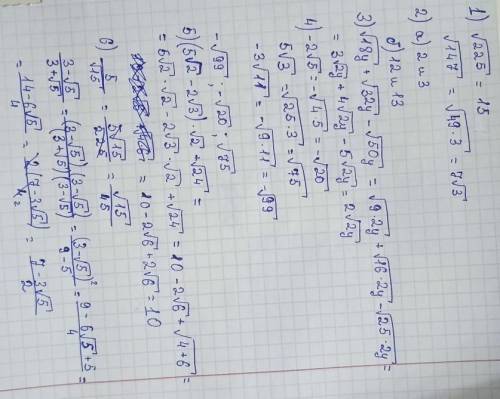 1) √225 = 15
√147 = √49·3 = 7√3
2) а) 2 и 3
б) 12 и 13
3) √18y + √32y - √50y = √9·2y + √16·2y - √25·2y =
= 3√2y + 4√2y - 5√2y = 2√2y
4) -2√5 = -√4·5 = -√20
5√3 = √25·3 = √75
-3√11 = -√9·11 = √99
-√99; -√20; √75
5) (5√2 - 2√3)·√2 + √24 =
= 5√2·√2 - 2√3·√2 + √24 = 10 - 2√6 + √4·6 =
= 10 - 2√6 + 2√6 = 10
6) 5/√15 = 5√15/225 = √15/45
3-√5/3+√5 = (3-√5)(3-√5)/(3+√5)(3-√5) = (3-√5)²/9-5 = 9-6√5+5/4 =
= 14-6√5/4 = 2(7-3√5)/4₂ = 7-3√5/2